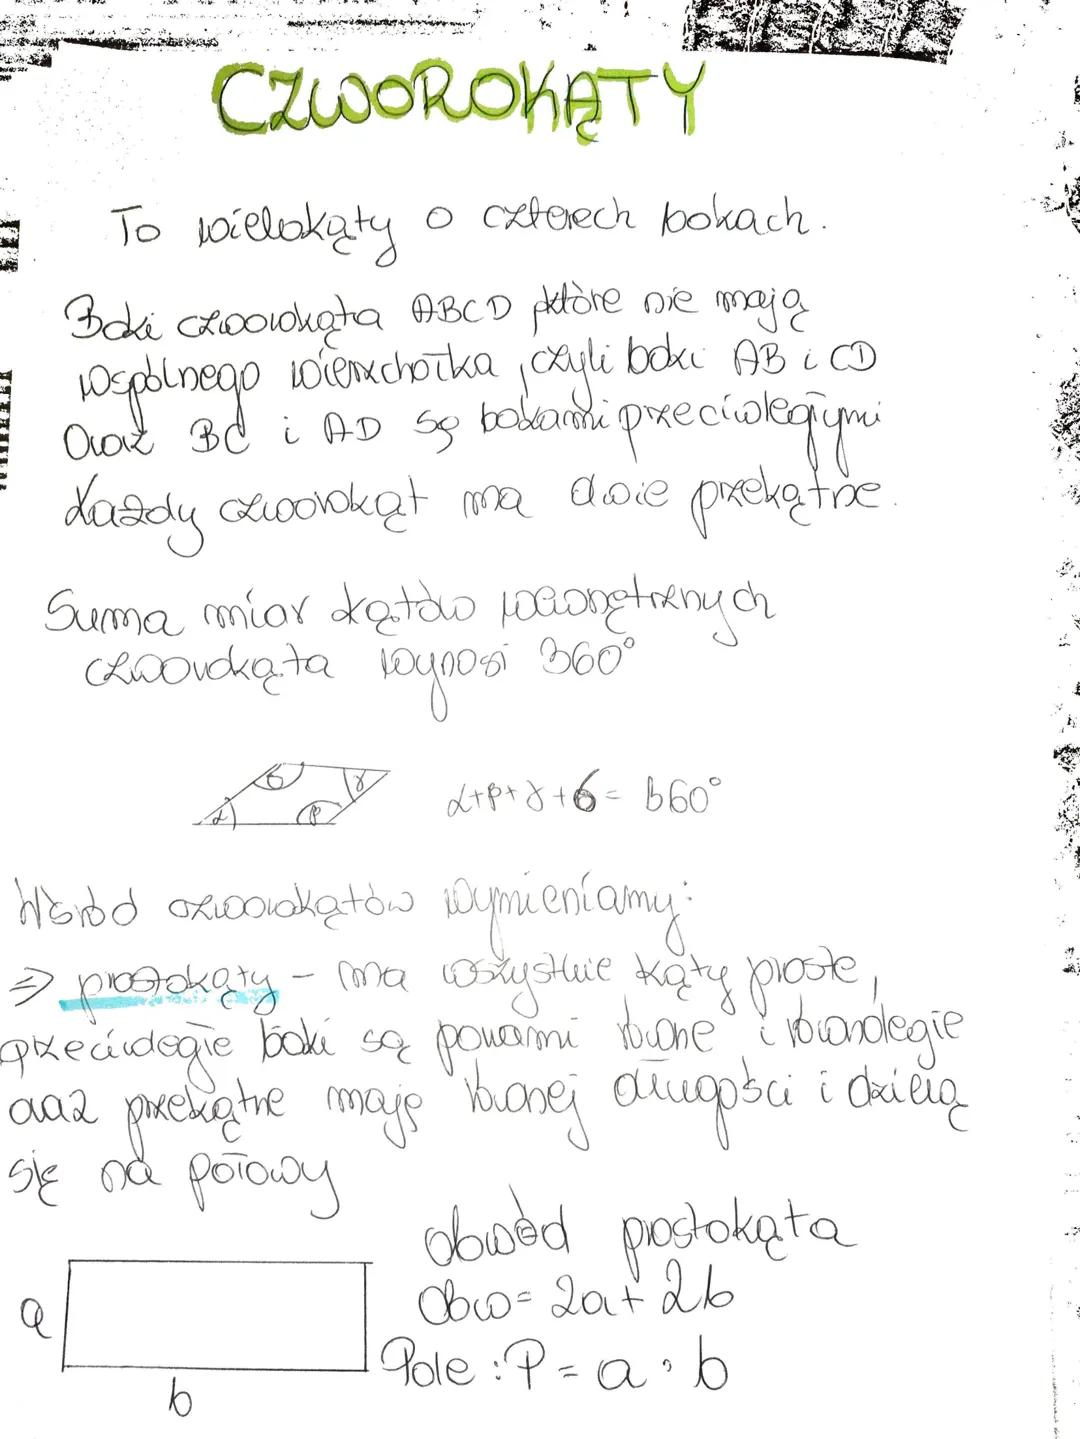 CZWOROKĄTY
To wielokąty o czterech bokach.
Boki czworokąta ABCD które nie mają
wspólnego wierzchołka, czyli boki AB i CD
Oraz BC i AD są bokami przeciwległymi
Każdy czworokąt ma dwie przekątne.
Suma miar kątów wewnętrznych
czworokąta wynosi 360°
δ γ
α β
α+β+γ+δ= 360°
Wśród czworokątów wymieniamy:
⇒ prostokąty - ma wszystkie kąty proste,
przeciwległe boki są równe i równoległe
oraz przekątne mają równej długości i dzielą
się na połowy
obwód prostokąta
a
Obw= 2a+2b
Pole : P = a · b
b